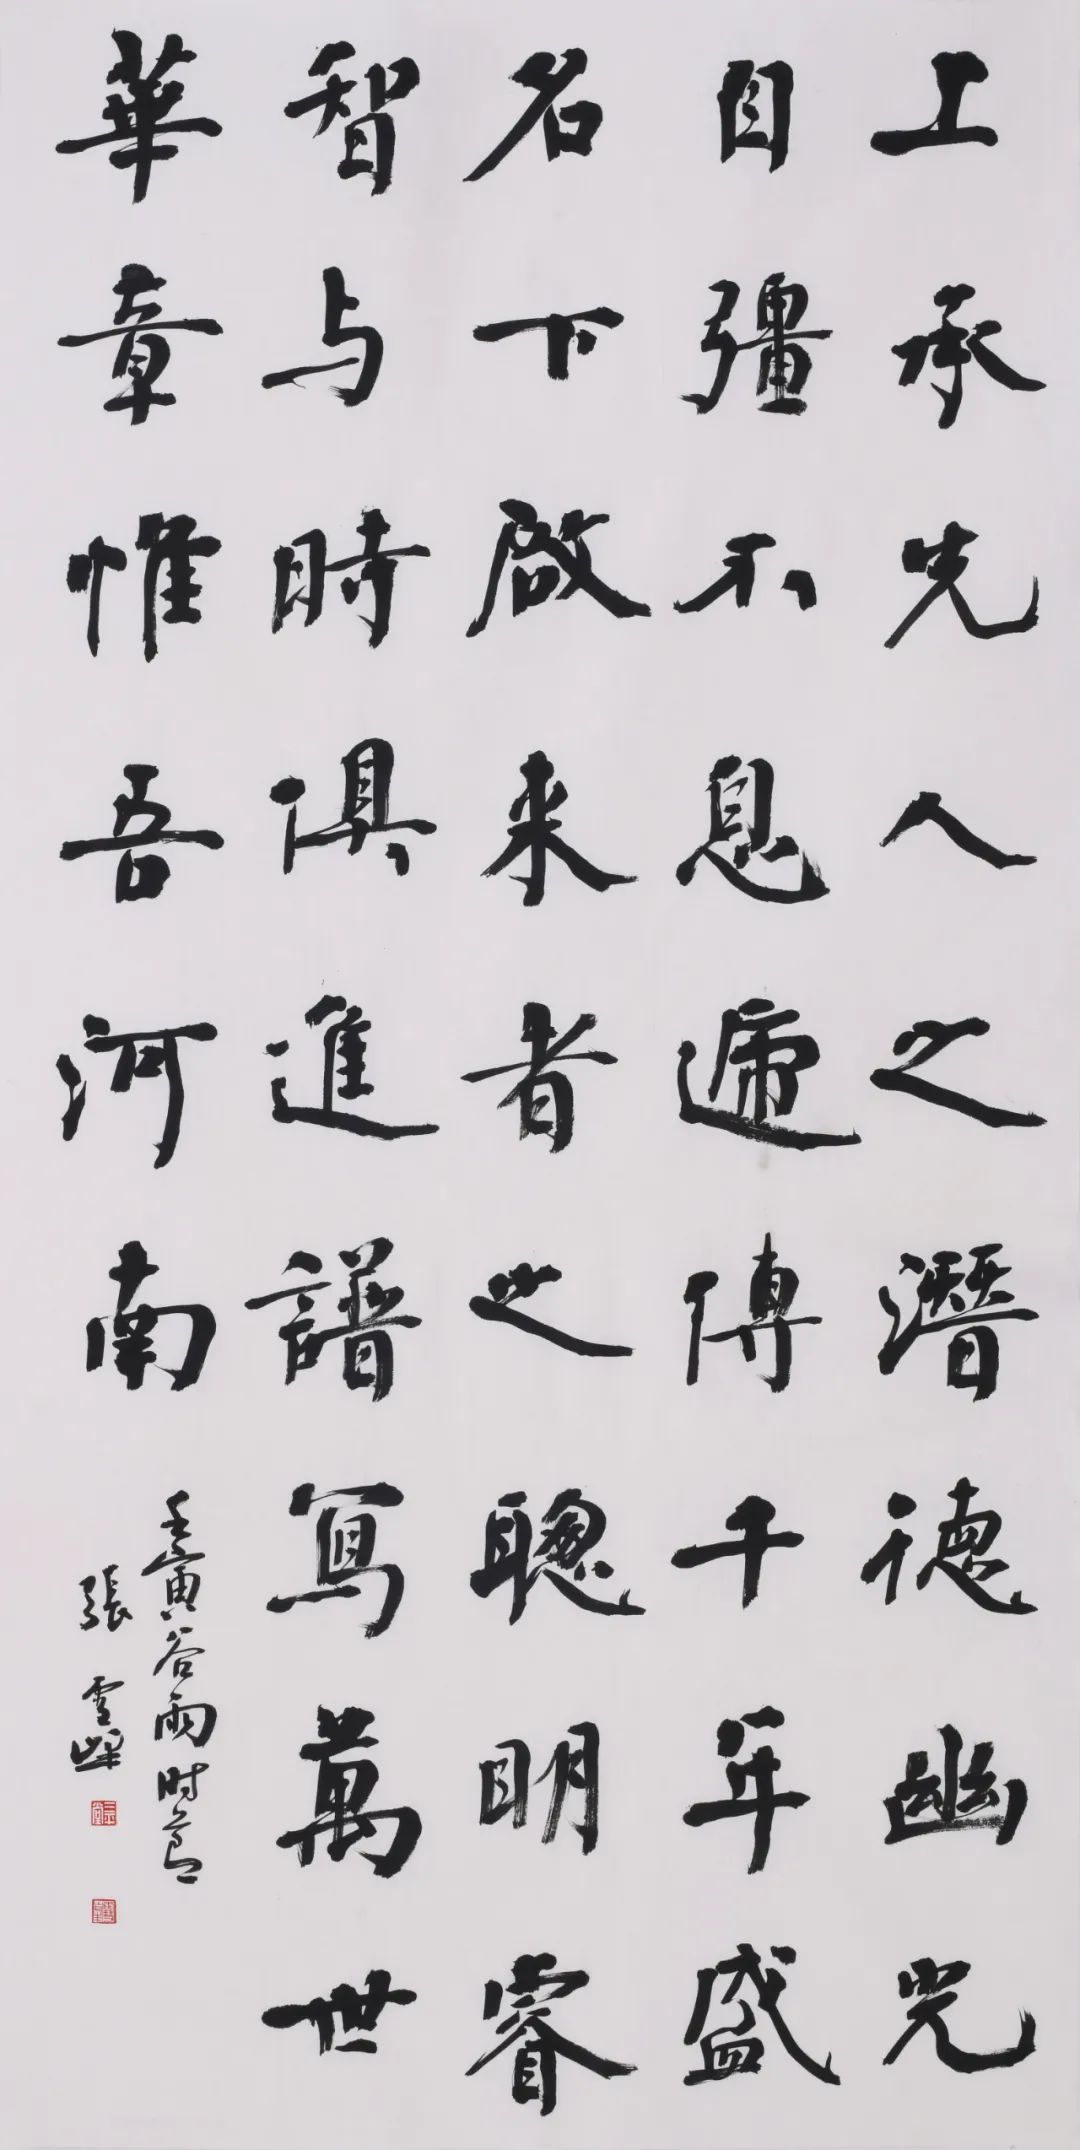 上承先人之潛德幽光
自彊不息遞傳千年盛
名下啟来者之聰明睿
智与時俱進譜寫萬世
華章惟吾河南
壬寅谷雨时节
張雪峰